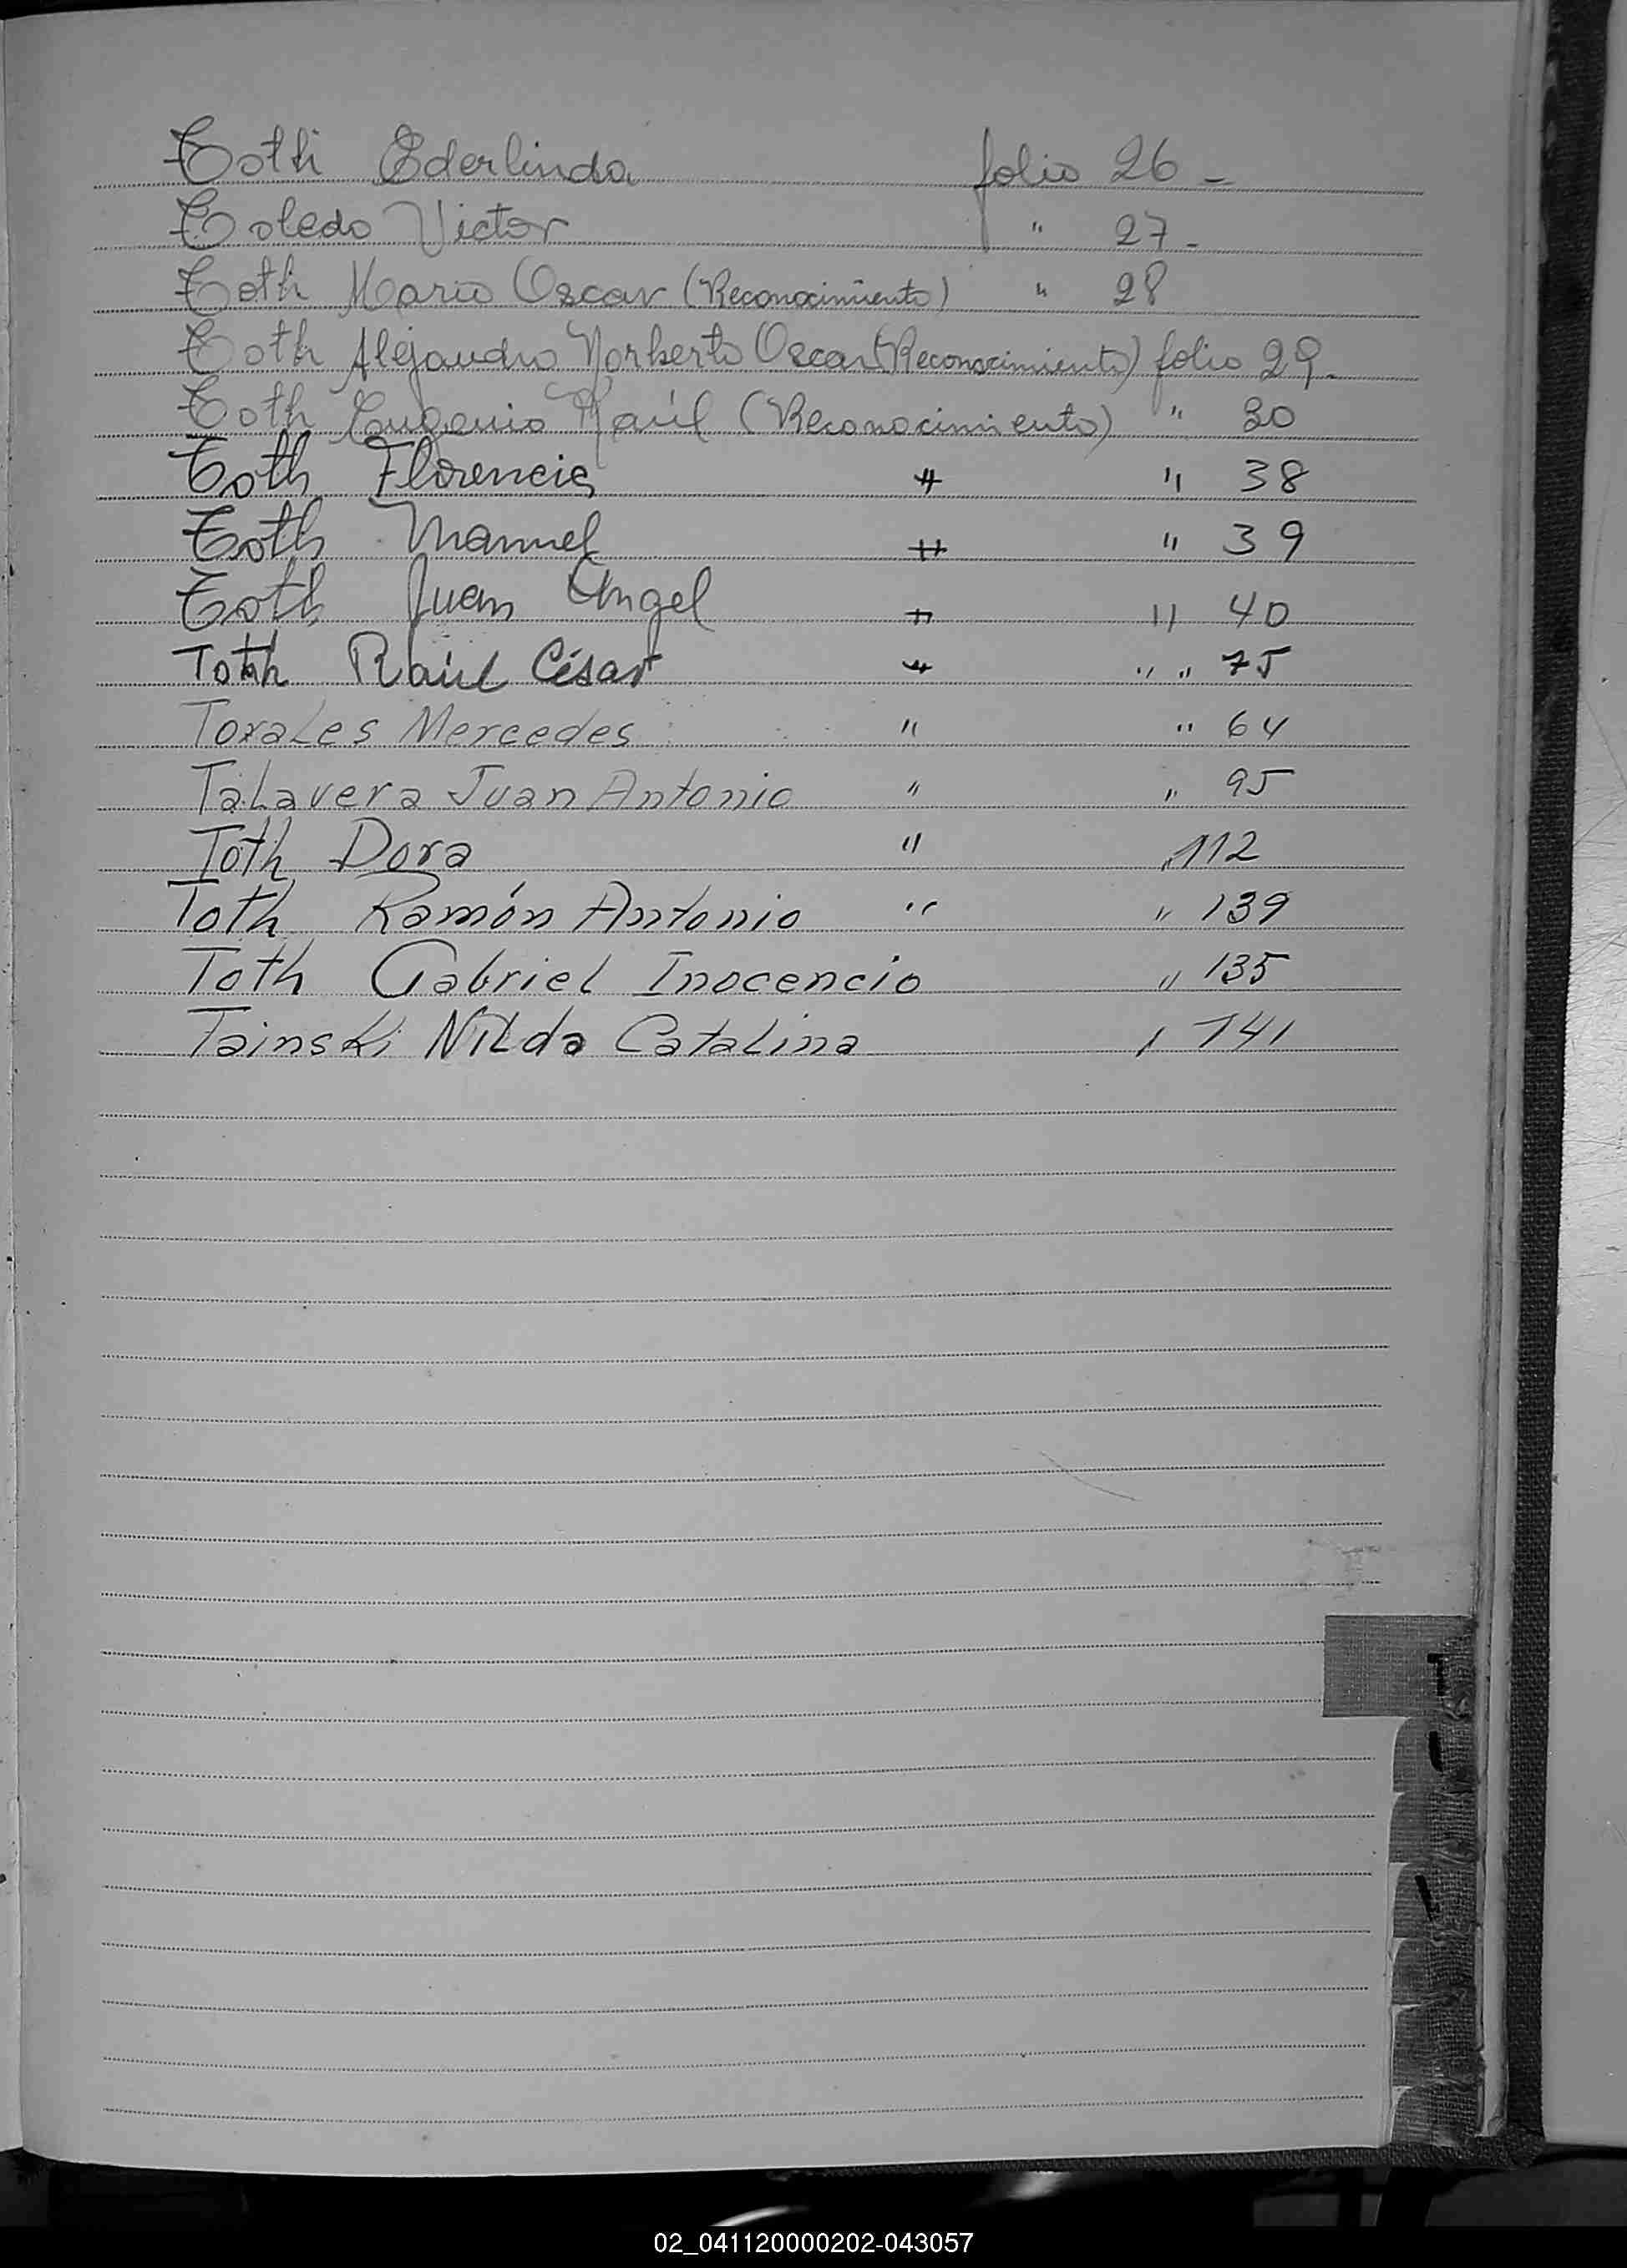 Toth Ederlinda folio 26 -
Toledo Victor " 27 -
Toth Mario Oscar (Reconocimiento) " 28
Toth Alejandro Norberto Oscar (Reconocimiento) folio 29.
Toth Eugenio Raúl (Reconocimiento) " 30
Toth Florencia " " 38
Toth Manuel " " 39
Toth Juan Angel " " 40
Toth Raúl César " " " 75
Torales Mercedes " " 64
Talavera Juan Antonio " " 95
Toth Dora " " 112
Toth Ramón Antonio " " 139
Toth Gabriel Inocencio " 135
Tainski Nilda Catalina " 141
T
02_041120000202-043057